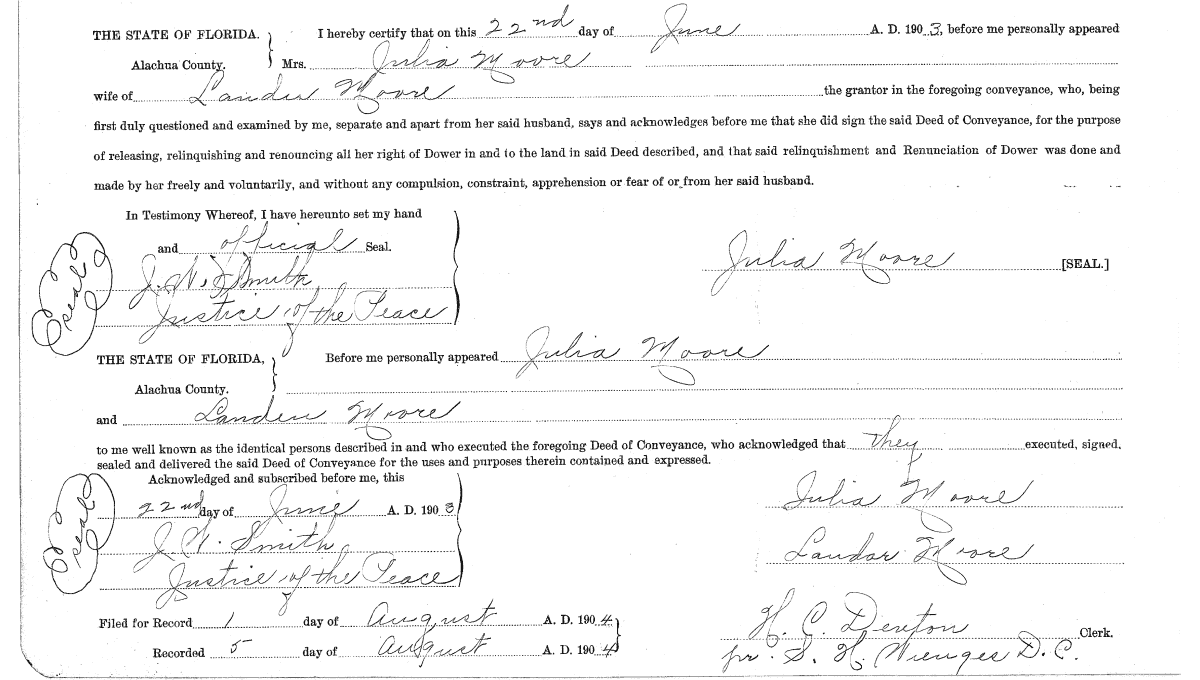 THE STATE OF FLORIDA. } I hereby certify that on this 22nd day of June A. D. 1903, before me personally appeared
Alachua County. Mrs. Julia Moore
wife of Landen Moore the grantor in the foregoing conveyance, who, being
first duly questioned and examined by me, separate and apart from her said husband, says and acknowledges before me that she did sign the said Deed of Conveyance, for the purpose
of releasing, relinquishing and renouncing all her right of Dower in and to the land in said Deed described, and that said relinquishment and Renunciation of Dower was done and
made by her freely and voluntarily, and without any compulsion, constraint, apprehension or fear of or from her said husband.
In Testimony Whereof, I have hereunto set my hand
and official Seal.
Seal
J. W. Smith
Julia Moore [SEAL.]
Justice of the Peace
THE STATE OF FLORIDA, } Before me personally appeared Julia Moore
Alachua County.
and Landen Moore
to me well known as the identical persons described in and who executed the foregoing Deed of Conveyance, who acknowledged that they executed, signed,
sealed and delivered the said Deed of Conveyance for the uses and purposes therein contained and expressed.
Acknowledged and subscribed before me, this
22nd day of June A. D. 1903
Julia Moore
Seal
J. W. Smith
Landor Moore
Justice of the Peace
Filed for Record 1 day of August A. D. 1904
H. C. Denton Clerk.
Recorded 5 day of August A. D. 1904
pr. S. H. Wienges D. C.